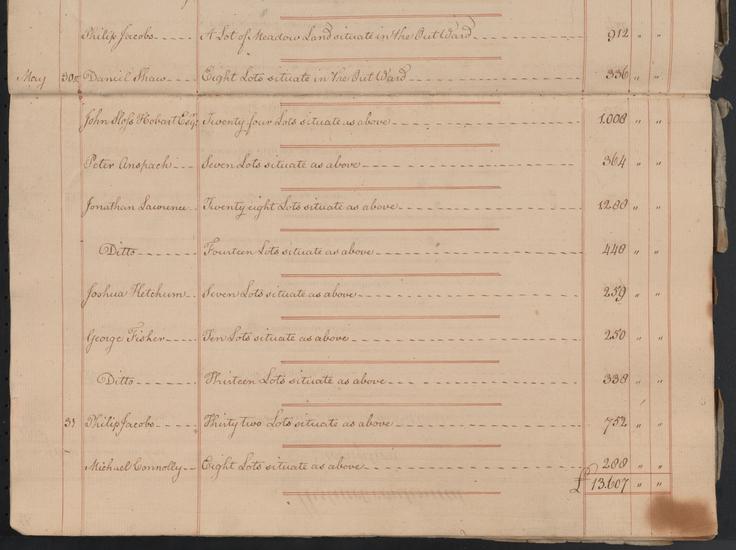 Philip Jacobs A Lot of Meadow Land situate in the Out Ward 912 " "
May 30th Daniel Shaw Eight Lots situate in the Out Ward 336 " "
John Sloss Hobart Esqr. Twenty four Lots situate as above 1.008 " "
Peter Anspach Seven Lots situate as above 364 " "
Jonathan Lawrence Twenty eight Lots situate as above 1288 " "
Ditto Fourteen Lots situate as above 448 " "
Joshua Ketchum Seven Lots situate as above 259 " "
George Fisher Ten Lots situate as above 250 " "
Ditto Thirteen Lots situate as above 338 " "
31 Philip Jacobs Thirty two Lots situate as above 752 " "
Michael Connolly Eight Lots situate as above 288 " "
£ 13.607 " "